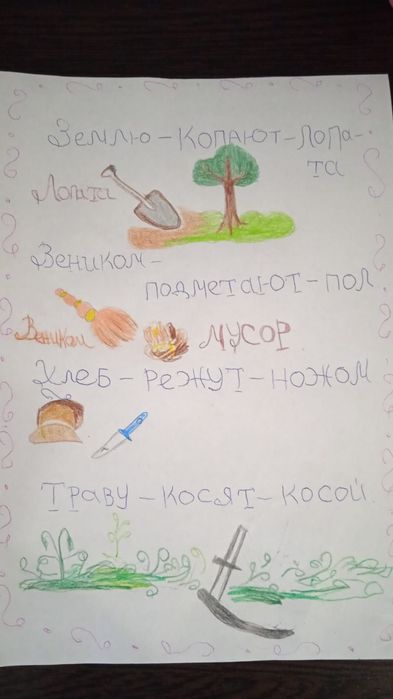 Землю – копают – лопа-
та
Лопата
Веником –
подметают – пол
Веником
мусор
Хлеб – режут – ножом
Траву – косят – косой.